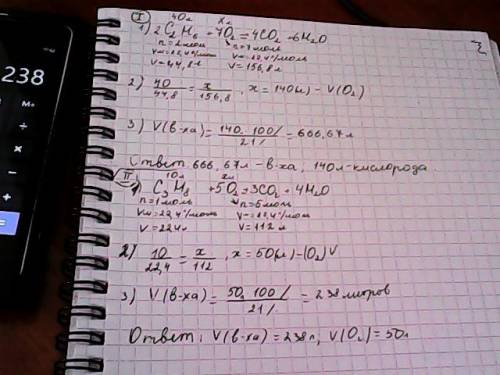 238
I 40л xл
1) 2C2H6 + 7O2 = 4CO2 + 6H2O
n=2моль n=7моль
Vm=22,4л/моль V=22,4л/моль
V=44,8л V=156,8л
2) 40/44,8 = x/156,8, x=140(л) - V(O2)
3) V(в-ха) = 140·100%/21% = 666,67л
Ответ 666,67л - в-ха, 140л - кислорода.
II 10л xл
1) C3H8 + 5O2 = 3CO2 + 4H2O
n=1моль n=5моль
Vм=22,4л/моль V=22,4л/моль
V=22,4л V=112л
2) 10/22,4 = x/112, x=50(л) - (O2)V
3) V(в-ха) = 50·100%/21% = 238литров
Ответ: V(в-ха)=238л, V(O2)=50л